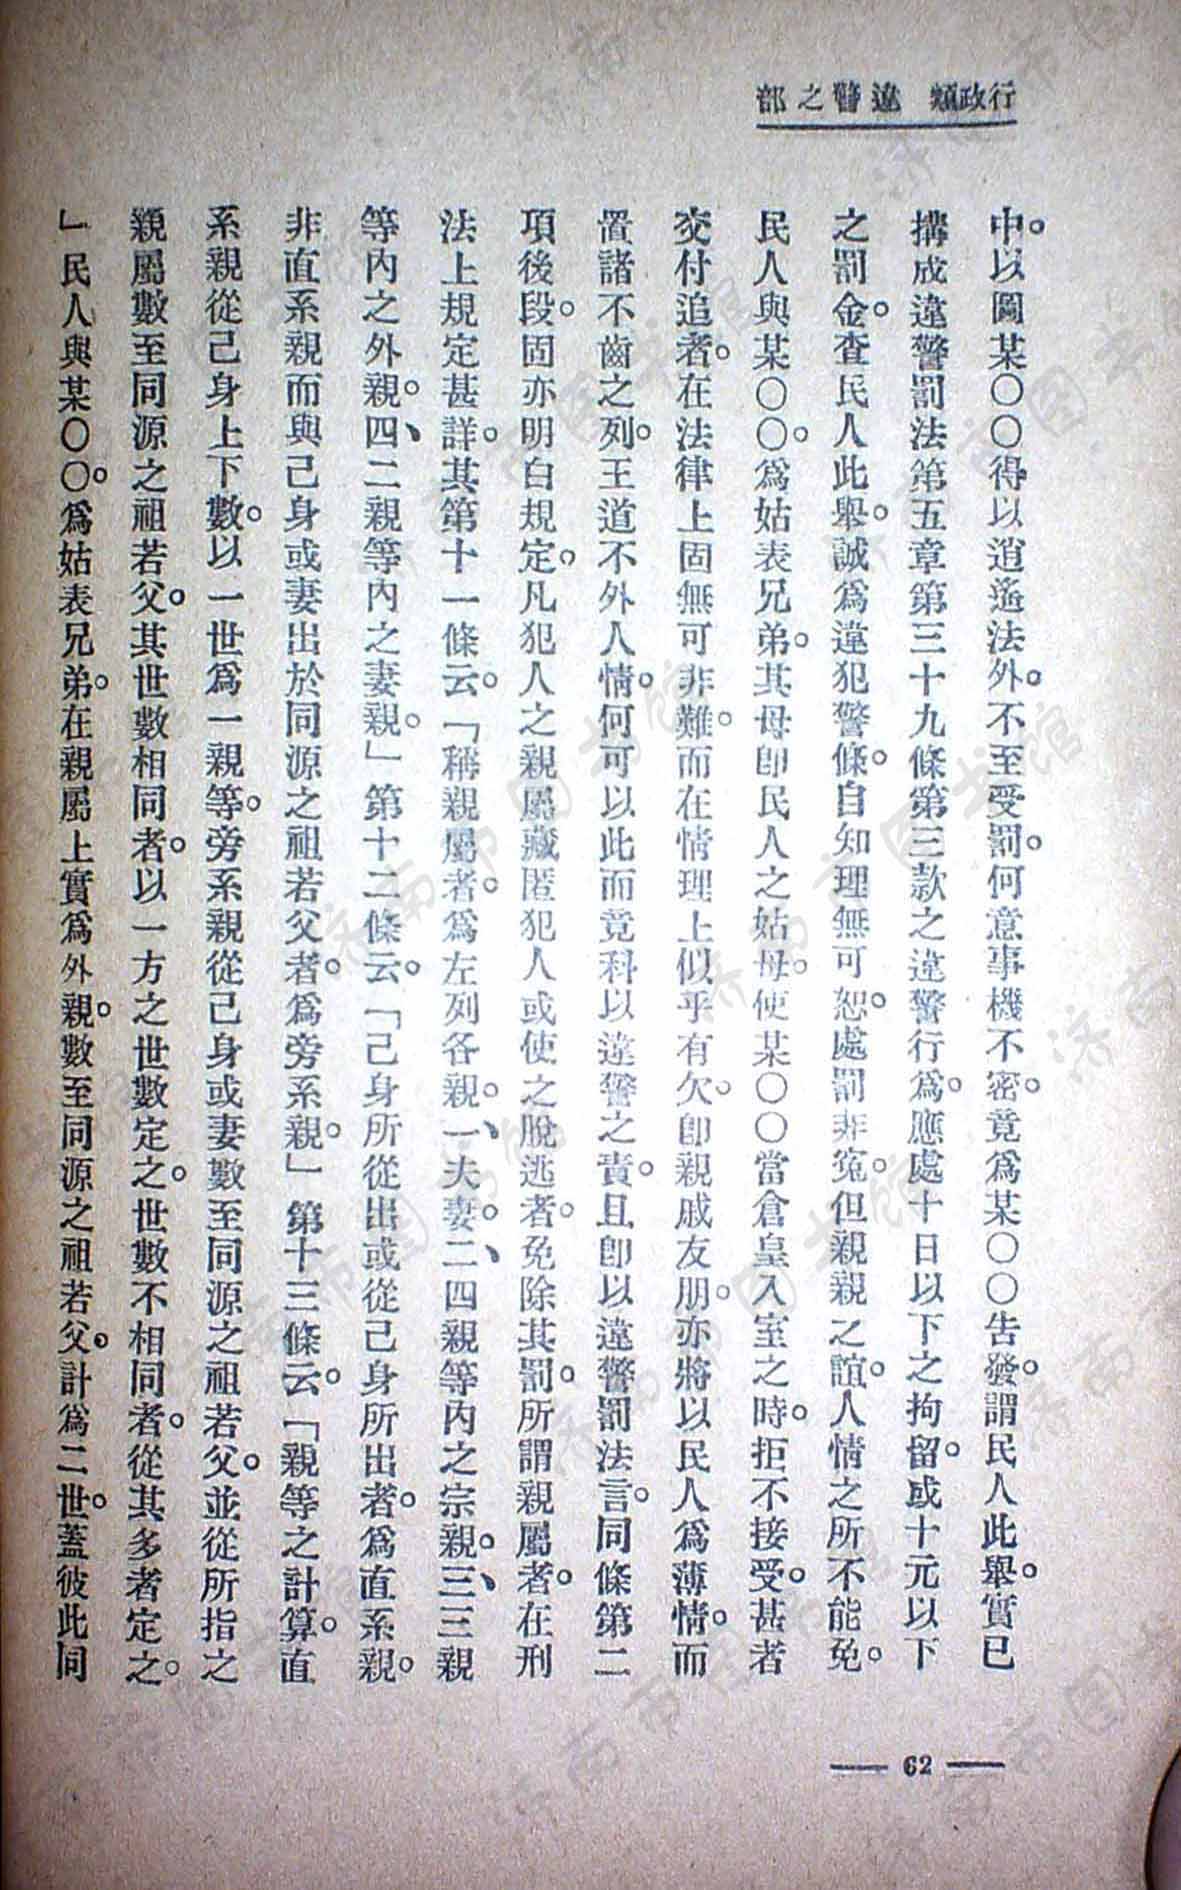 行政類 違警之部
中。以圖某〇〇得以逍遙法外。不至受罰。何意事機不密。竟爲某〇〇告發。謂民人此舉。實已
搆成違警罰法第五章第三十九條第三款之違警行爲。應處十日以下之拘留。或十元以下
之罰金。查民人此舉。誠爲違犯警條。自知理無可恕。處罰非寃。但親親之誼。人情之所不能免。
民人與某〇〇。爲姑表兄弟。其母卽民人之姑母。使某〇〇當倉皇入室之時。拒不接受。甚者
交付追者。在法律上固無可非難。而在情理上似乎有欠。卽親戚友朋。亦將以民人爲薄情。而
置諸不齒之列。王道不外人情。何可以此而竟科以違警之責。且卽以違警罰法言。同條第二
項後段。固亦明白規定。凡犯人之親屬藏匿犯人或使之脫逃者。免除其罰。所謂親屬者。在刑
法上規定甚詳。其第十一條云。「稱親屬者。爲左列各親。一、夫妻。二、四親等內之宗親。三、三親
等內之外親。四、二親等內之妻親。」第十二條云。「己身所從出或從己身所出者。爲直系親。
非直系親而與己身或妻出於同源之祖若父者。爲旁系親。」第十三條云。「親等之計算。直
系親從己身上下數。以一世爲一親等。旁系親從己身或妻數至同源之祖若父。並從所指之
親屬數至同源之祖若父。其世數相同者。以一方之世數定之。世數不相同者。從其多者定之。
」民人與某〇〇。爲姑表兄弟。在親屬上實爲外親。數至同源之祖若父。計爲二世。蓋彼此同
— 62 —
济南市图书馆